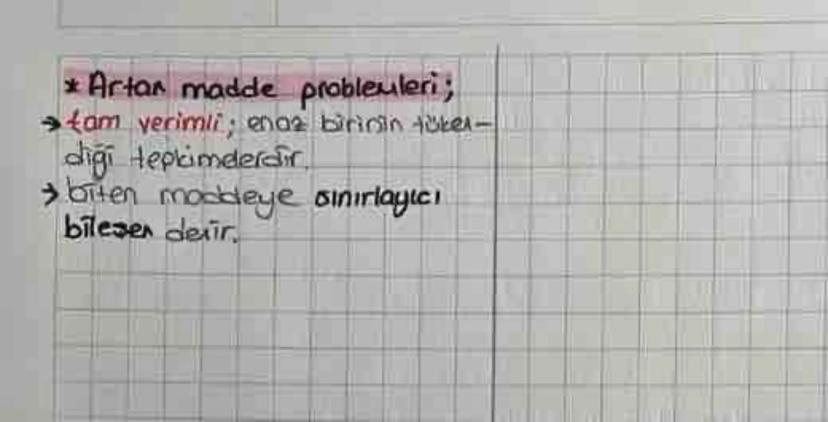 * Artan madde problemleri;
→ tam verimli; enaz birinin tüken-
diği tepkimelerdir.
→ biten maddeye sınırlayıcı
bileşen denir.